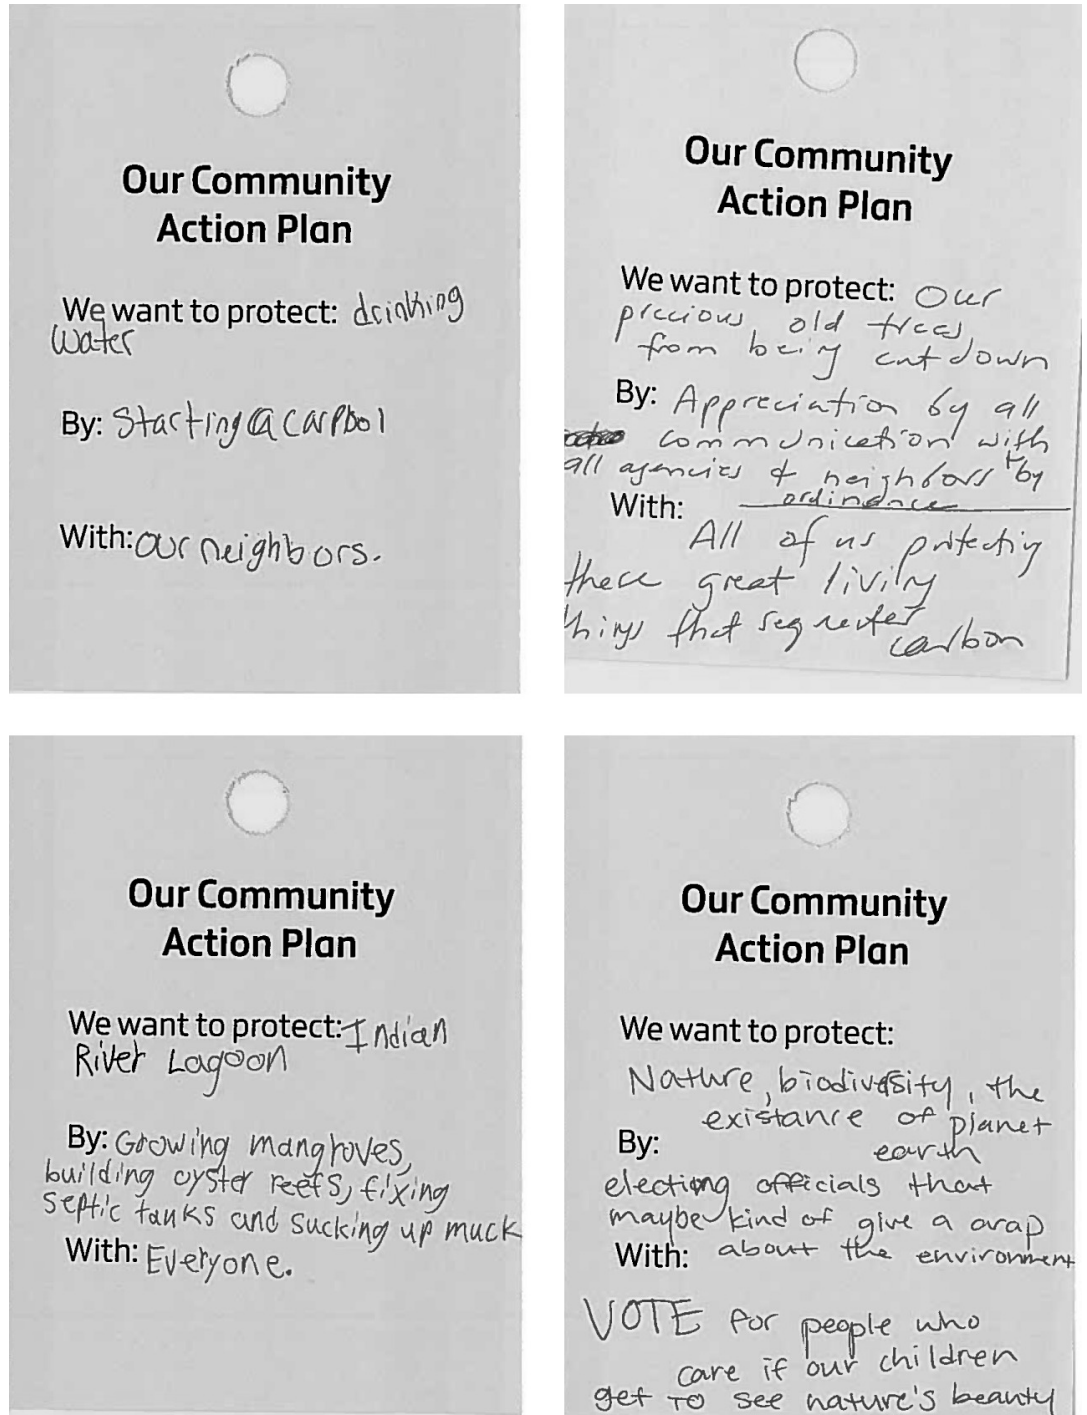 Our Community
Action Plan
We want to protect: drinking
Water
By: Starting a carpool
With: our neighbors.
Our Community
Action Plan
We want to protect: Our
precious, old trees
from being cut down
By: Appreciation by all
communication with
all agencies & neighbors + by
ordinance
With:
All of us protecting
these great living
things that sequester
carbon
Our Community
Action Plan
We want to protect: Indian
River Lagoon
By: Growing mangroves,
building oyster reefs, fixing
septic tanks and sucking up muck
With: Everyone.
Our Community
Action Plan
We want to protect:
Nature, biodiversity, the
existance of planet
earth
By:
electing officials that
maybe kind of give a crap
With: about the environment
VOTE for people who
care if our children
get to see nature's beauty